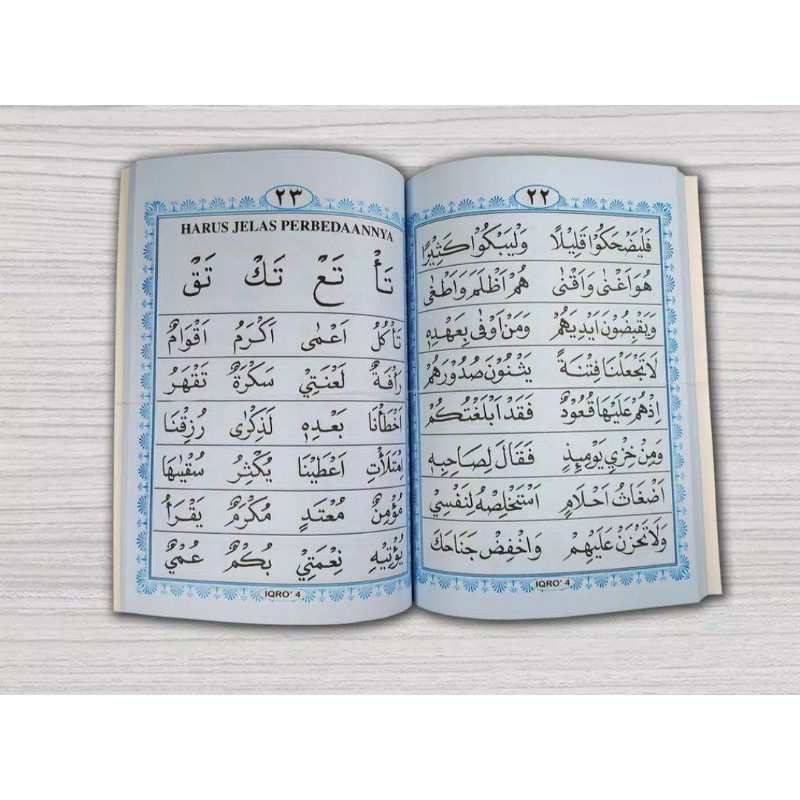 ٢٢
فَلْيَضْحَكُوْا قَلِيْلًا وَلْيَبْكُوْا كَثِيْرًا
هُوَ اَغْنٰى وَاَقْنٰى هُمْ اَظْلَمَ وَاَطْغٰى
وَيَقْبِضُوْنَ اَيْدِيَهُمْ وَمَنْ اَوْفٰى بِعَهْدِهٖ
لَا تَجْعَلْنَا فِتْنَةً يَثْنُوْنَ صُدُوْرَهُمْ
اِذْهُمْ عَلَيْهَا قُعُوْدٌ فَقَدْ اَبْلَغْتُكُمْ
وَمِنْ خِزْيِ يَوْمِئِذٍ فَقَالَ لِصَاحِبِهٖ
اَضْغَاثُ اَحْلَامٍ اَسْتَخْلِصْهُ لِنَفْسِيْ
وَلَا تَحْزَنْ عَلَيْهِمْ وَاخْفِضْ جَنَاحَكَ
IQRO' 4
٢٣
HARUS JELAS PERBEDAANNYA
تَأْ تَعْ تَكْ تَقْ
تَأْكُلُ اَعْمٰى اَكْرَمُ اَقْوَامٌ
رَأْفَةٌ لَعْنَتِيْ سَكْرَةٌ تَقْهَرْ
اَخْطَأْنَا بَعْدِهٖ لَذِكْرٰى رُزِقْنَا
اِمْتَلَأْتِ اَعْطَيْنَا يُكْثِرُ سُقْيٰهَا
مُؤْمِنٌ مُعْتَدٍ مُكْرَمٌ يَقْرَأُ
يُؤْتِيْهِ نِعْمَتِيْ بُكْمٌ عُمْيٌ
IQRO' 4